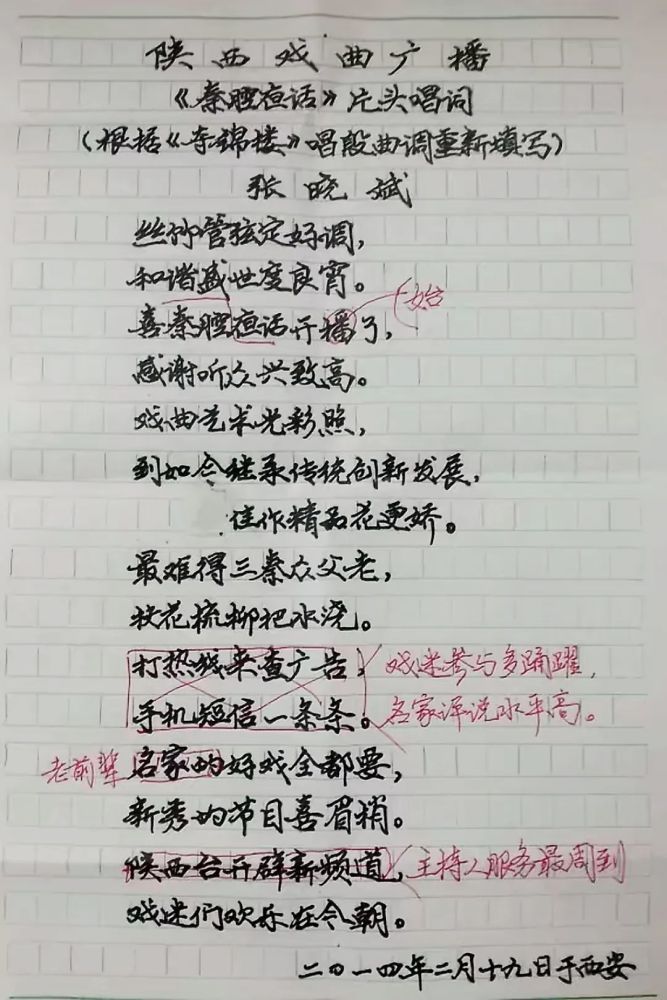 陕西戏曲广播
《秦腔夜话》片头唱词
（根据《夺锦楼》唱段曲调重新填写）
张晓斌
丝竹管弦定好调，
和谐盛世度良宵。
喜秦腔夜话开播了，
始
感谢听众兴致高。
戏曲艺术光彩照，
到如今继承传统创新发展，
佳作精品花更娇。
最难得三秦众父老，
扶花梳柳把水浇。
打热线来查广告，戏迷参与多踊跃，
手机短信一条条。名家评说水平高。
老前辈名家的好戏全都要，
新秀的节目喜眉梢。
陕西台开辟新频道，主持人服务最周到
戏迷们欢乐在今朝。
二〇一四年二月十九日于西安